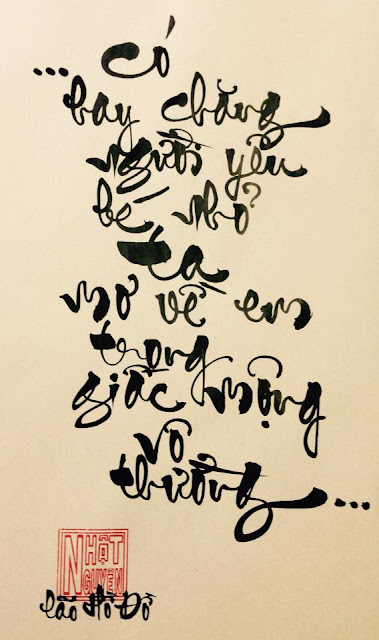 ... có
bay chăng
người yêu
bé nhỏ
ta
mơ về em
trong
giấc mộng
vô
thường ...
NHẬT
NGUYÊN
lão Hồ Đồ